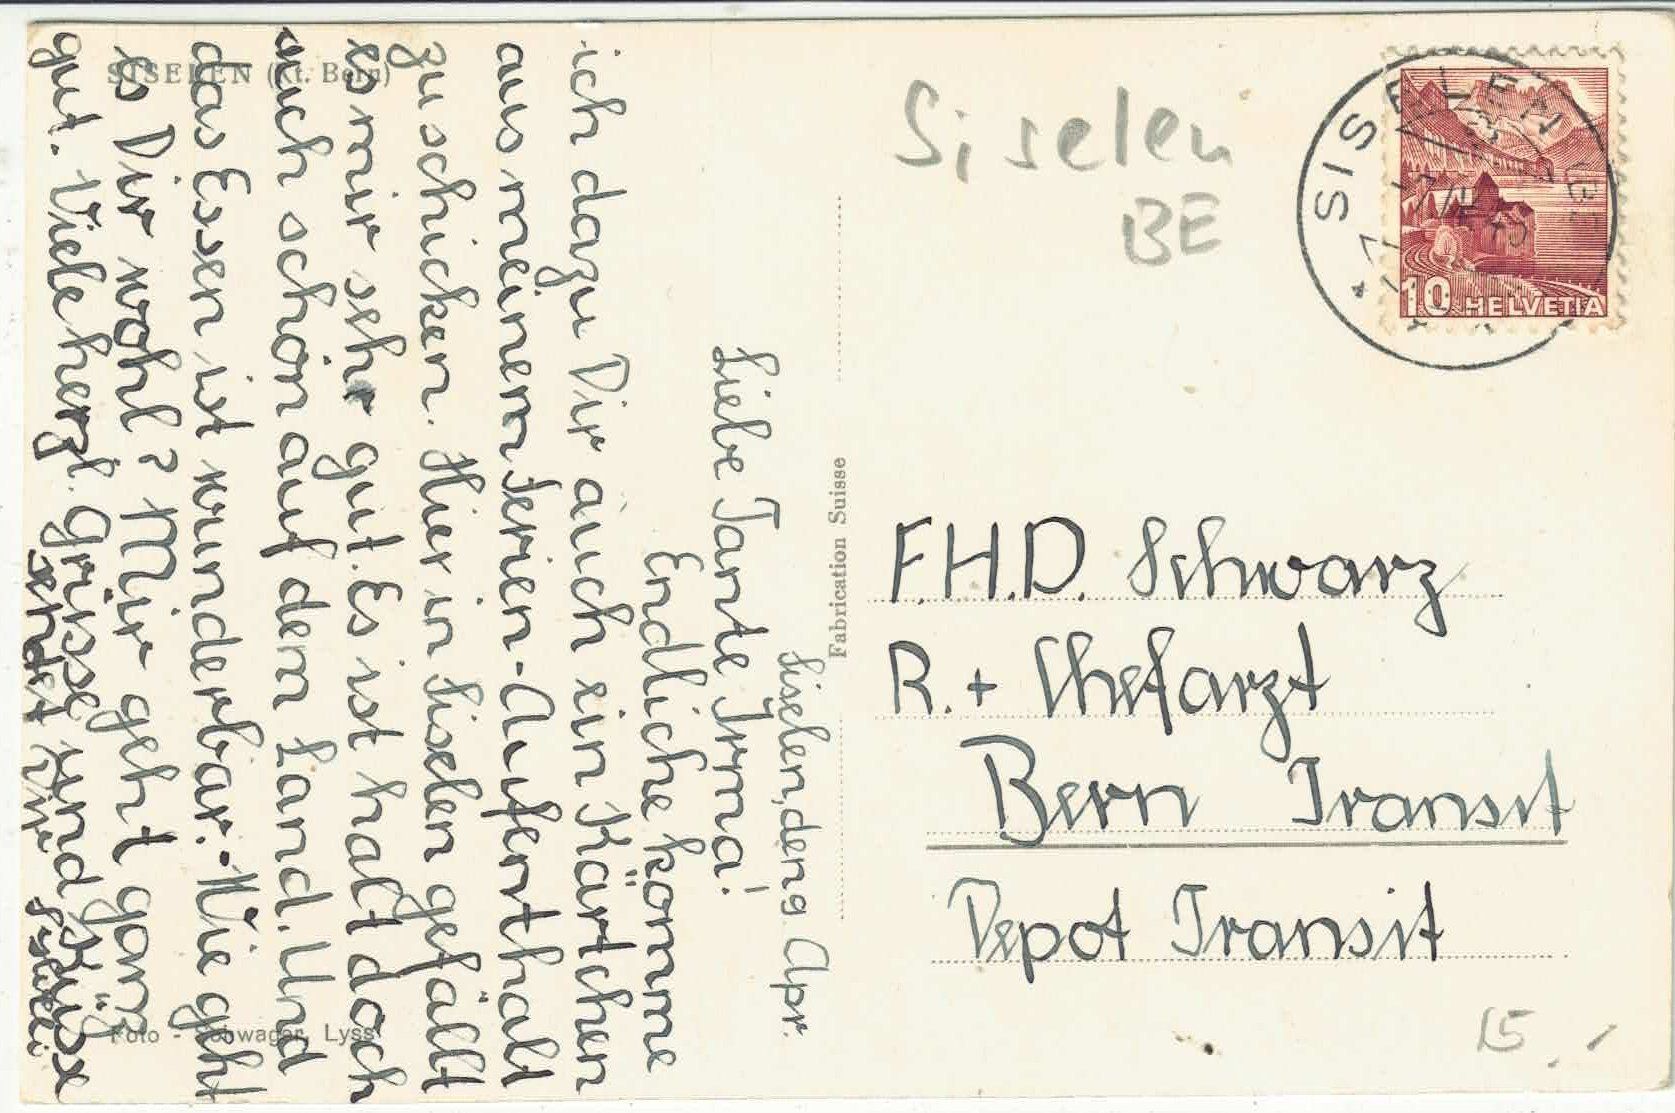 SISELEN (Kt. Bern)
Siselen, den 9. Apr.
Liebe Tante Irma!
Endliche komme
ich dazu Dir auch ein Kärtchen
aus meinem Ferien-Aufenthalt
zu schicken. Hier in Siselen gefällt
es mir sehr gut. Es ist halt doch
auch schön auf dem Land. Und
das Essen ist wunderbar.- Wie geht
es Dir wohl? Mir geht ganz
gut. Viele herzl. Grüsse und Küsse
sendet Dir
Foto - Schwager, Lyss
Fabrication Suisse
Siselen
BE
SISELEN (BE
10 HELVETIA
F.H.D. Schwarz
R. + Chefarzt
Bern Transit
Depot Transit
15.-